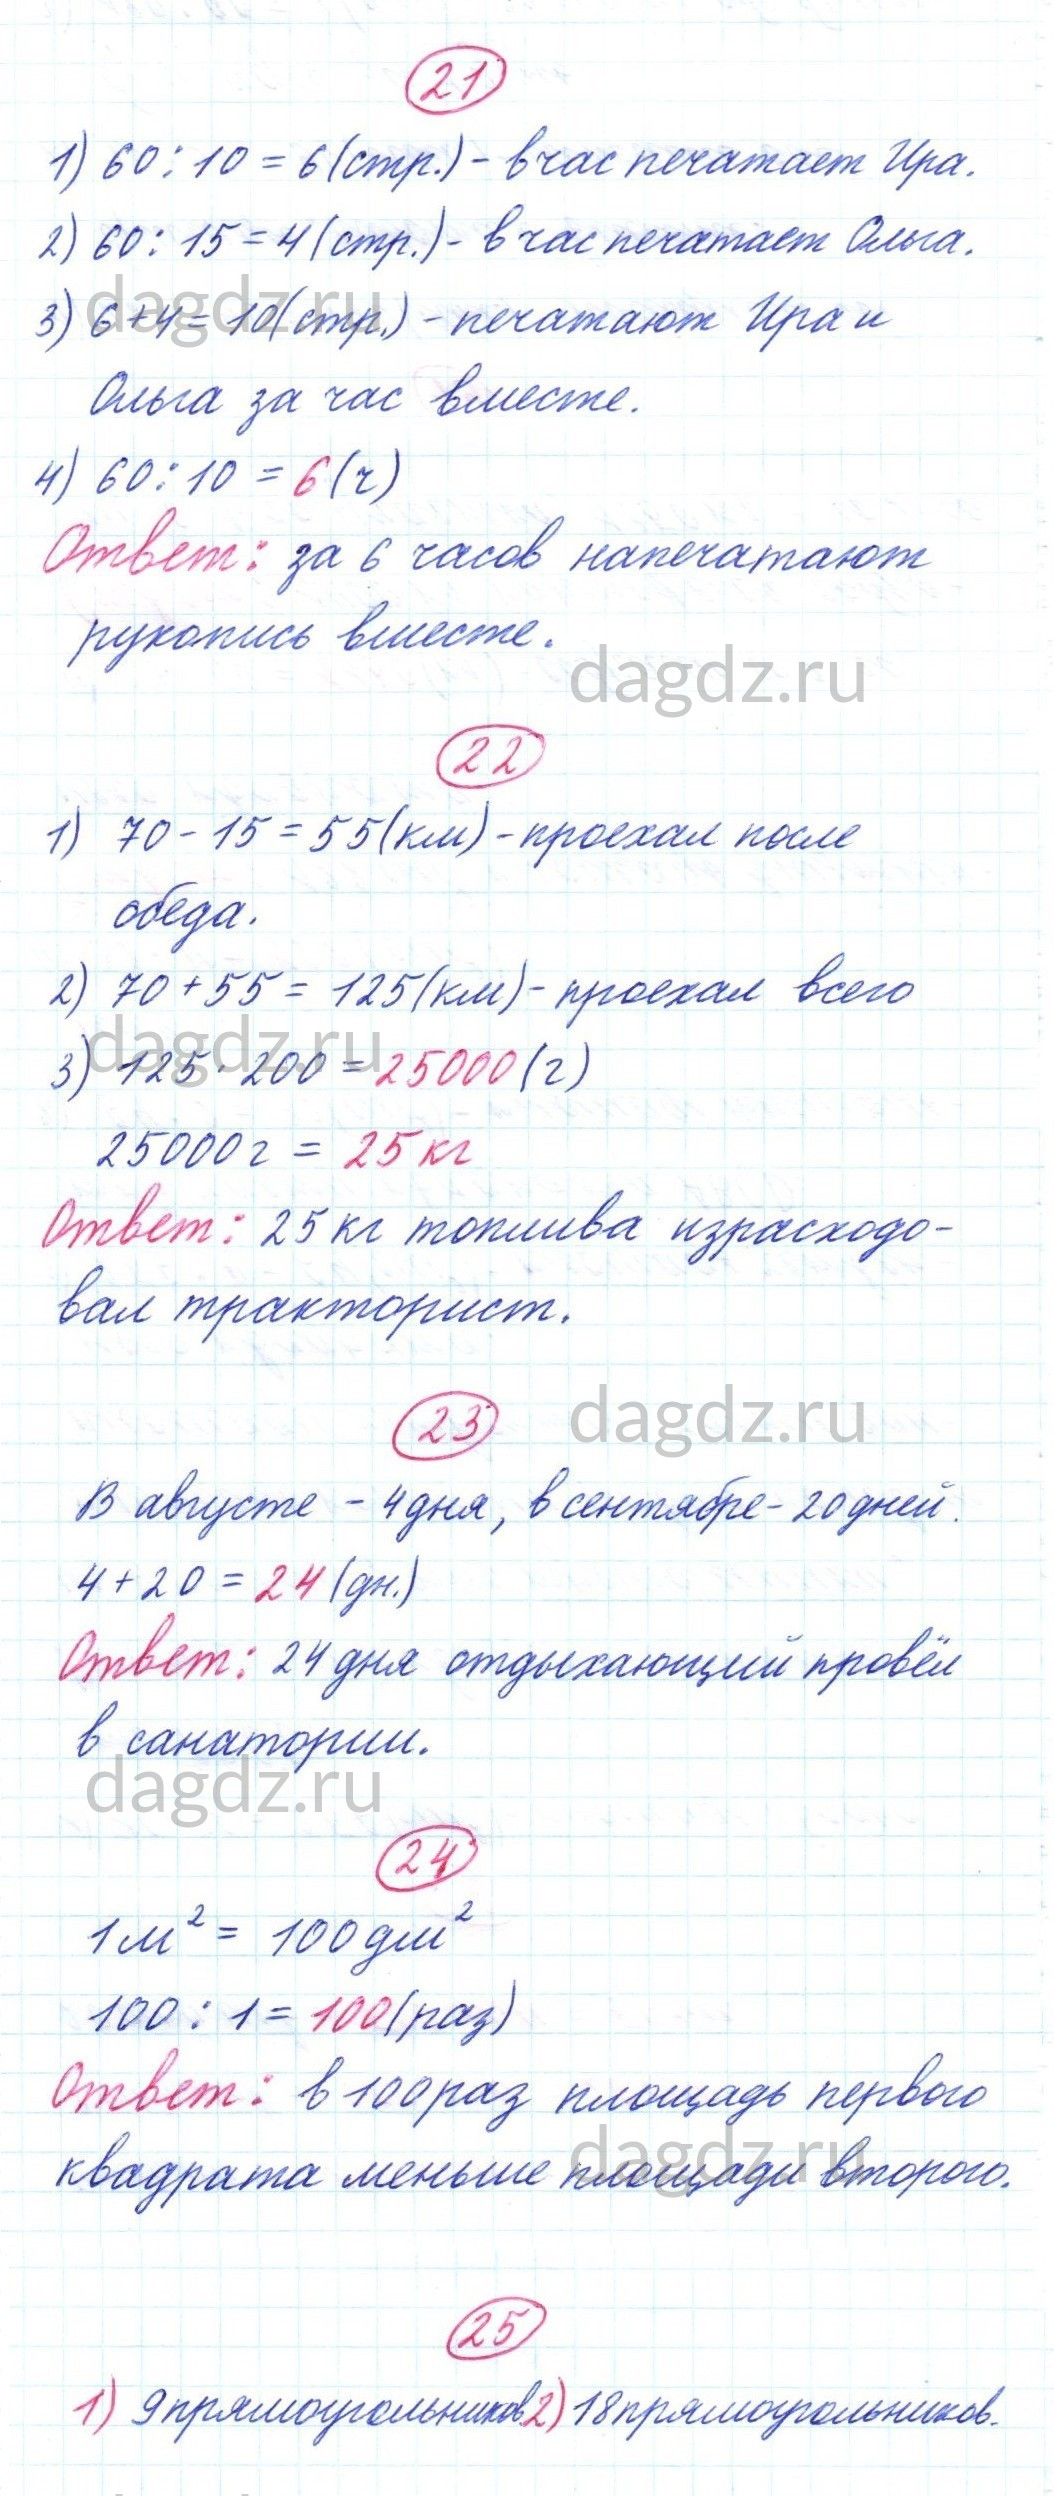 21
1) 60 : 10 = 6 (стр.) - в час печатает Ира.
2) 60 : 15 = 4 (стр.) - в час печатает Ольга.
dagdz.ru
3) 6 + 4 = 10 (стр.) - печатают Ира и
Ольга за час вместе.
4) 60 : 10 = 6 (ч)
Ответ: за 6 часов напечатают
рукопись вместе.
dagdz.ru
22
1) 70 - 15 = 55 (км) - проехал после
обеда.
2) 70 + 55 = 125 (км) - проехал всего
dagdz.ru
3) 125 · 200 = 25000 (г)
25000 г = 25 кг
Ответ: 25 кг топлива израсходо-
вал тракторист.
dagdz.ru
23
В августе - 4 дня, в сентябре - 20 дней.
4 + 20 = 24 (дн.)
Ответ: 24 дня отдыхающий провёл
в санатории.
dagdz.ru
24
1 м² = 100 дм²
100 : 1 = 100 (раз)
Ответ: в 100 раз площадь первого
dagdz.ru
квадрата меньше площади второго.
25
1) 9 прямоугольников. 2) 18 прямоугольников.